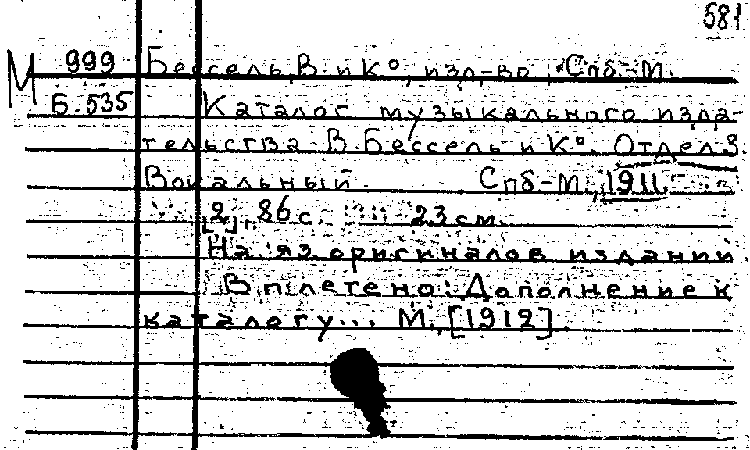 581
М 999 Бессель, В. и К°, изд-во, Спб.-М.
Б.535 Каталог музыкального изда-
тельства В. Бессель и К°. Отдел 3.
Вокальный. Спб-М., 1911.
[2], 86 с. 23 см.
На яз. оригиналов издании.
Вплетено: Дополнение к
каталогу... М., [1912].